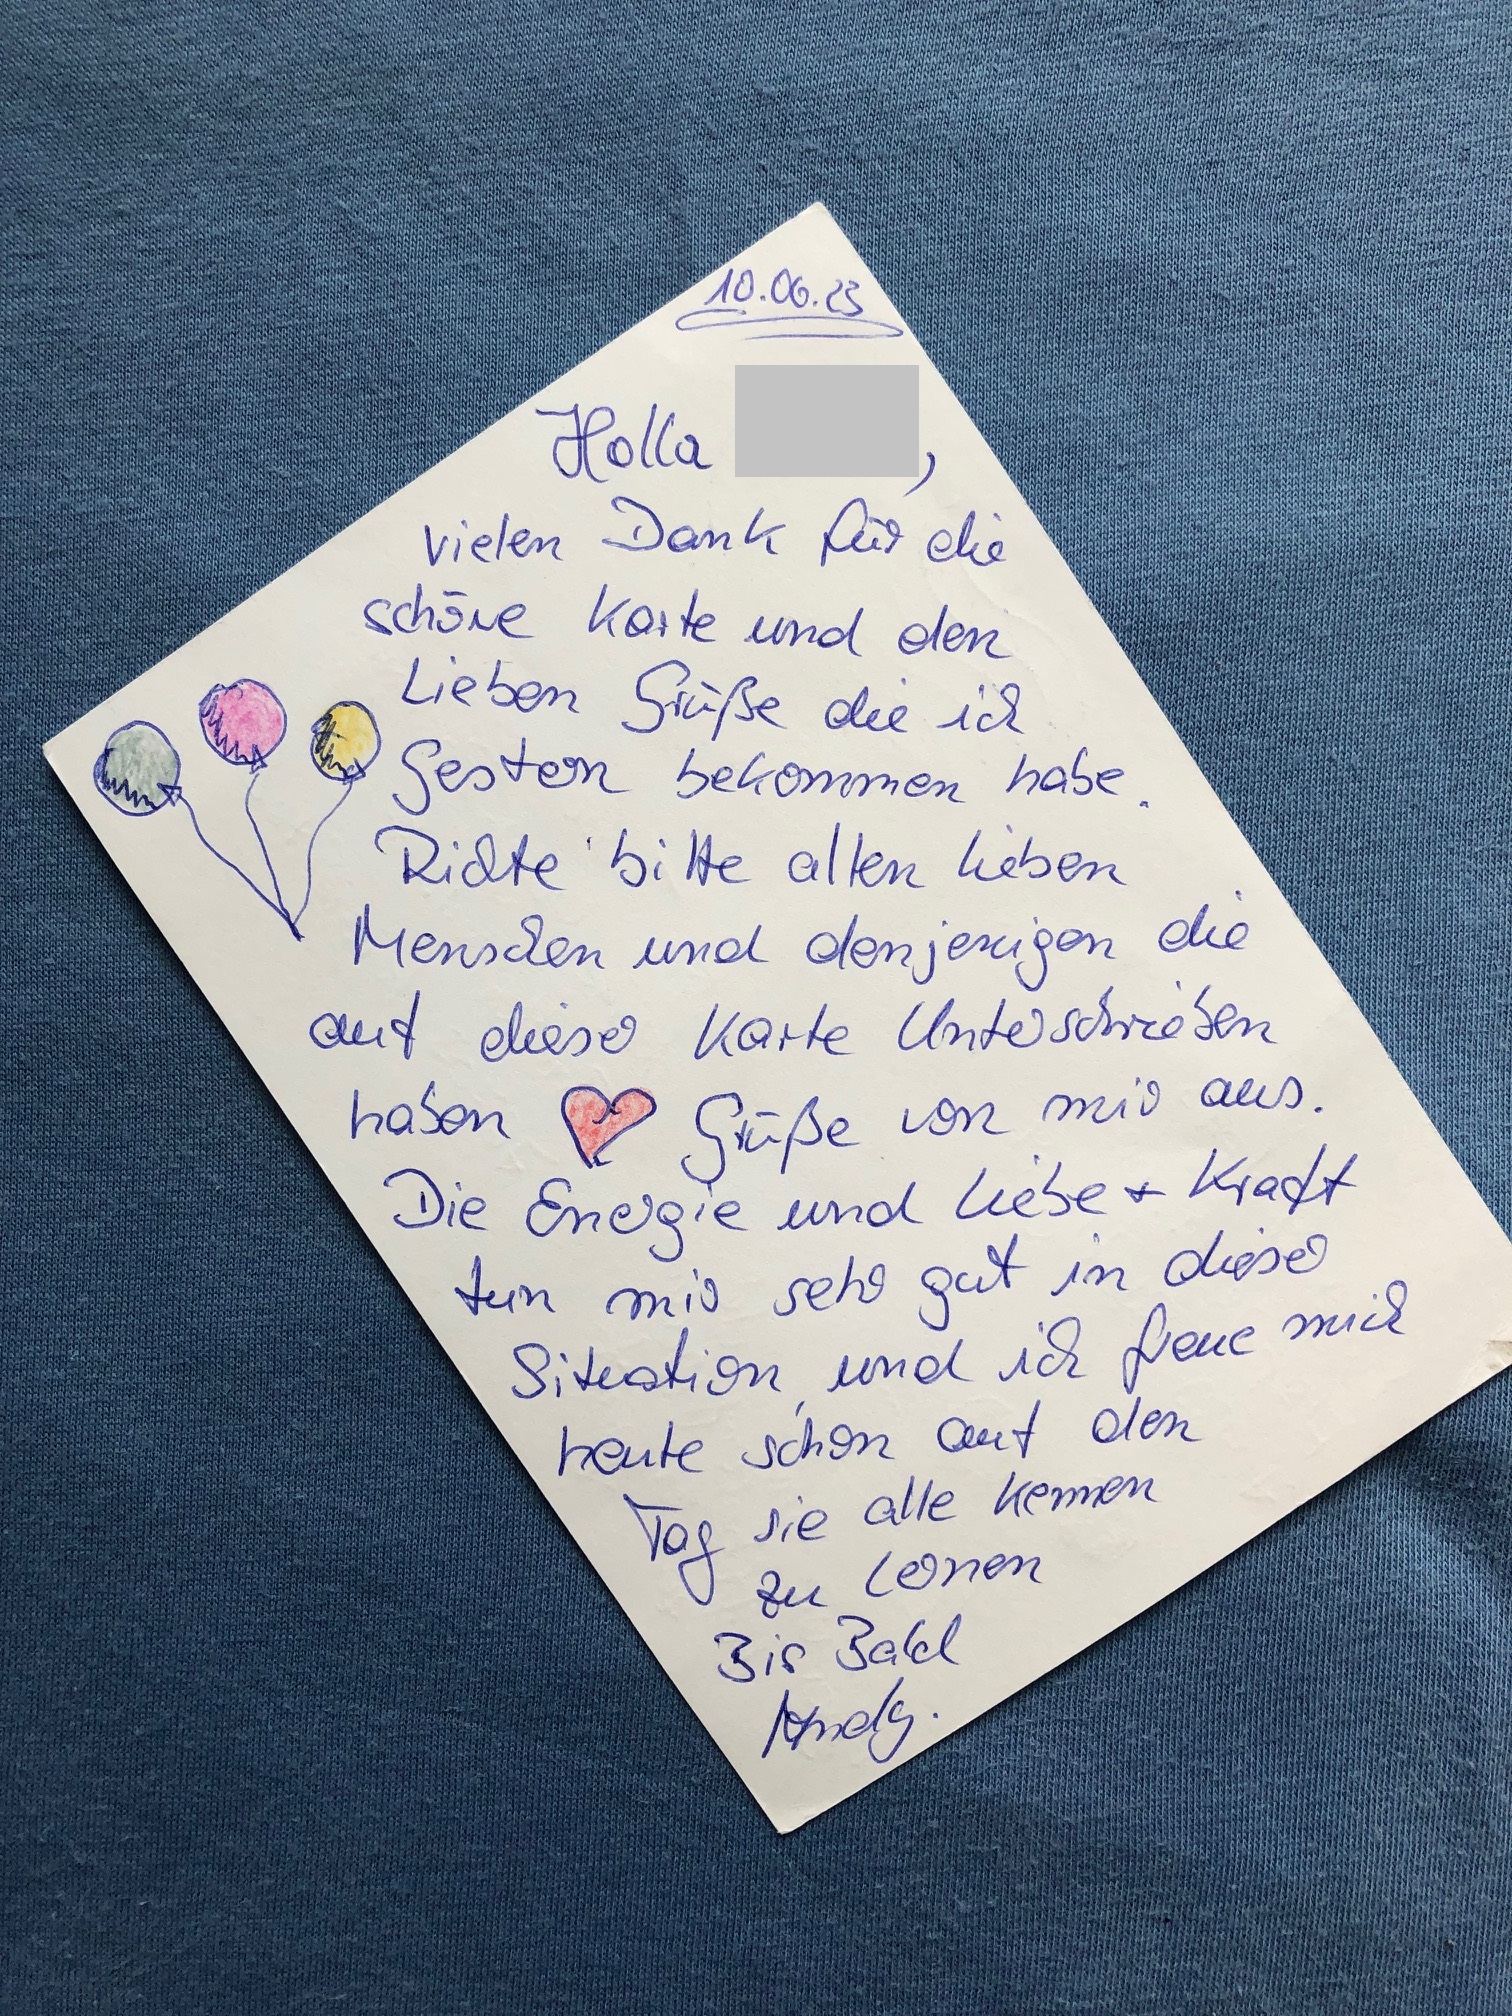 10.06.23
Holla ,
vielen Dank für die
schöne Karte und den
Lieben Grüße die ich
Gestern bekommen habe.
Richte bitte allen lieben
Menschen und denjenigen die
auf dieser Karte Unterschrieben
haben Grüße von mir aus.
Die Energie und Liebe + Kraft
tun mir sehr gut in dieser
Situation, und ich freue mich
heute schon auf den
Tag sie alle kennen
zu lernen
Bis Bald
Andy.